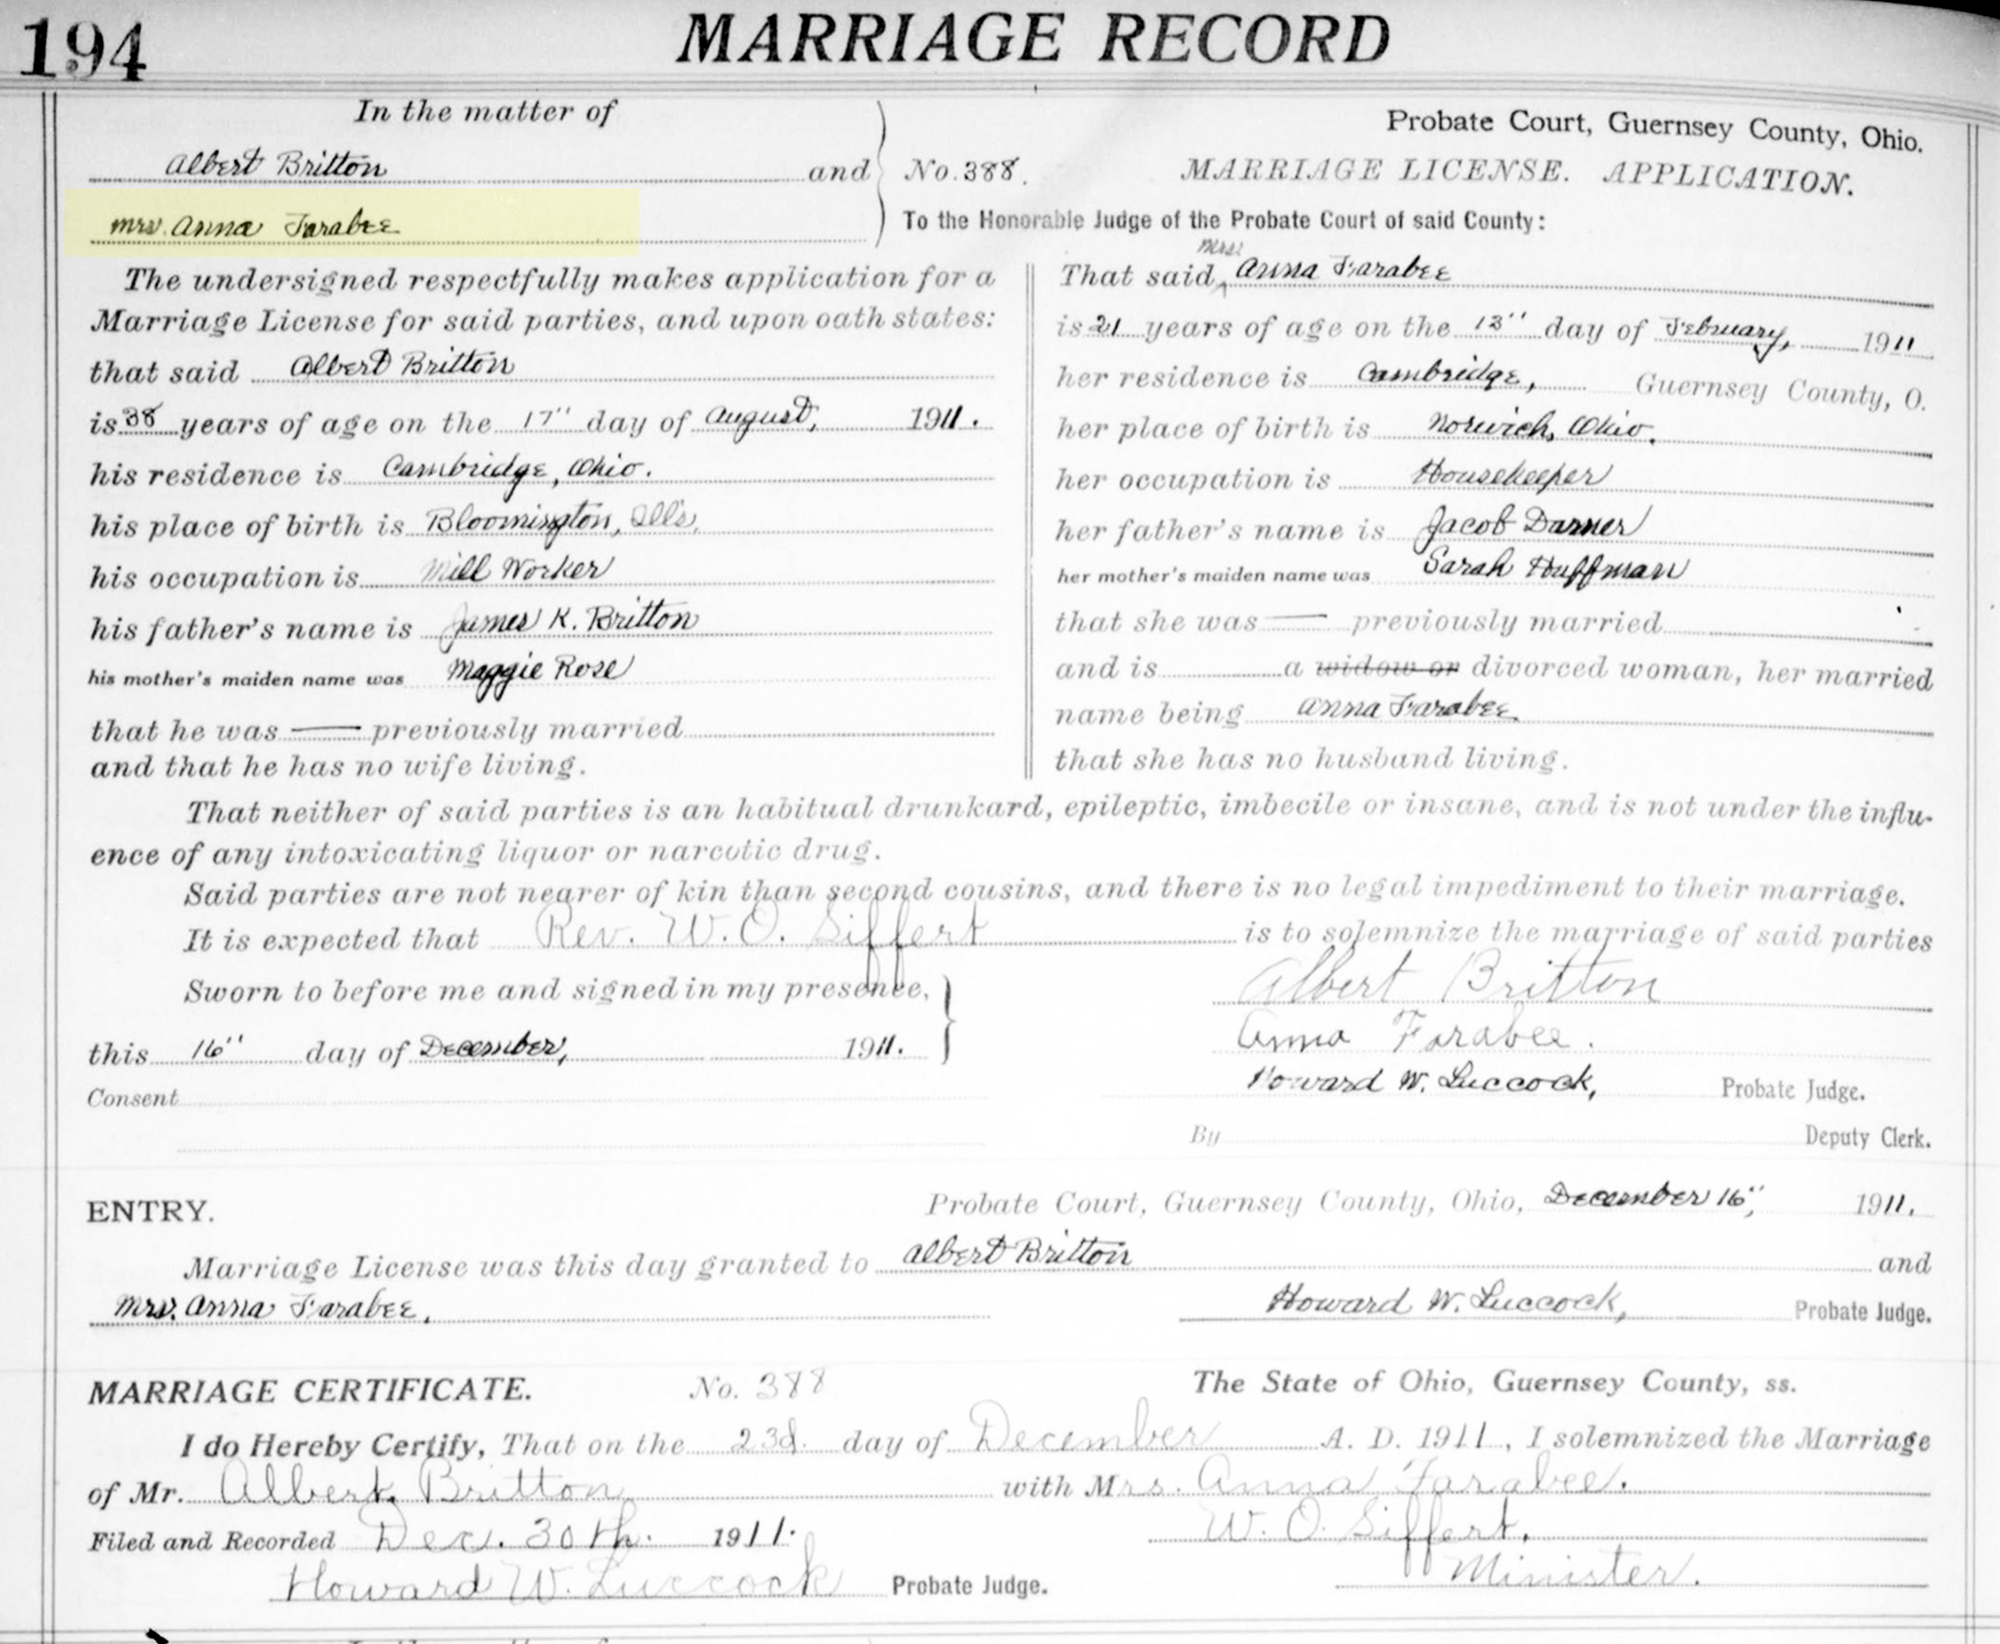 194
MARRIAGE RECORD
In the matter of
Albert Britton and
Mrs. Anna Farabee
No. 388.
Probate Court, Guernsey County, Ohio.
MARRIAGE LICENSE. APPLICATION.
To the Honorable Judge of the Probate Court of said County:
The undersigned respectfully makes application for a
Marriage License for said parties, and upon oath states:
that said Albert Britton
is 38 years of age on the 17" day of August, 1911.
his residence is Cambridge, Ohio.
his place of birth is Bloomington, Ills,
his occupation is Mill Worker
his father's name is James K. Britton
his mother's maiden name was Maggie Rose
that he was — previously married
and that he has no wife living.
Mrs.
That said Anna Farabee
is 21 years of age on the 13" day of February, 1911
her residence is Cambridge, Guernsey County, O.
her place of birth is Norwich, Ohio.
her occupation is Housekeeper
her father's name is Jacob Darner
her mother's maiden name was Sarah Huffman
that she was — previously married
and is a widow or divorced woman, her married
name being Anna Farabee
that she has no husband living.
That neither of said parties is an habitual drunkard, epileptic, imbecile or insane, and is not under the influ-
ence of any intoxicating liquor or narcotic drug.
Said parties are not nearer of kin than second cousins, and there is no legal impediment to their marriage.
It is expected that Rev. W. O. Siffert is to solemnize the marriage of said parties
Sworn to before me and signed in my presence,
this 16" day of December, 1911.
Consent
Albert Britton
Anna Farabee.
Howard W. Luccock, Probate Judge.
By Deputy Clerk.
ENTRY. Probate Court, Guernsey County, Ohio, December 16", 1911.
Marriage License was this day granted to Albert Britton and
Mrs. Anna Farabee. Howard W. Luccock, Probate Judge.
MARRIAGE CERTIFICATE. No. 388 The State of Ohio, Guernsey County, ss.
I do Hereby Certify, That on the 23d. day of December A. D. 1911, I solemnized the Marriage
of Mr. Albert Britton with Mrs. Anna Farabee.
Filed and Recorded Dec. 30th. 1911. W. O. Siffert,
Howard W. Luccock Probate Judge. Minister.